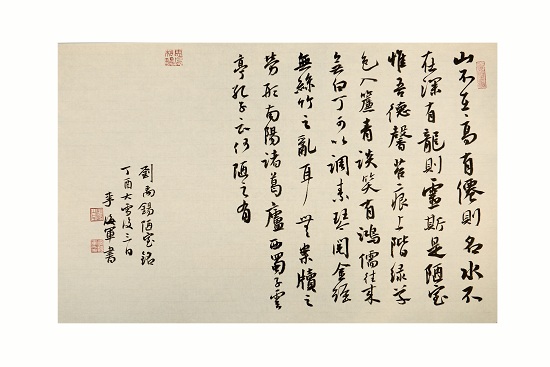 山不在高有僊則名水不
在深有龍則靈斯是陋室
惟吾德馨苔痕上階緑草
色入簾青談笑有鴻儒往来
無白丁可以調素琴閱金經
無絲竹之亂耳無案牘之
勞形南陽諸葛廬西蜀子雲
亭孔子云何陋之有
劉禹錫陋室銘
丁酉大雪後三日
李海軍書